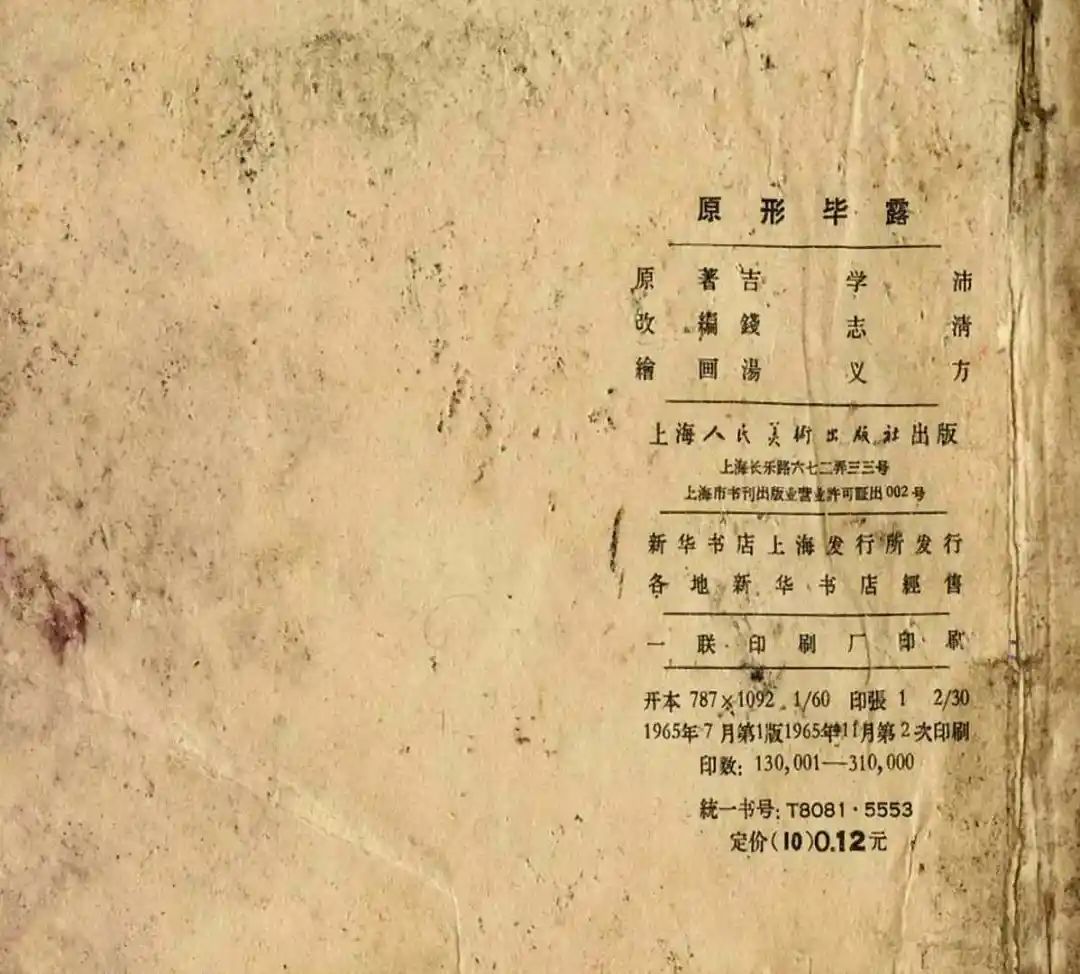 原形毕露
原著 吉学沛
改编 錢志清
繪画 湯义方
上海人民美術出版社出版
上海长乐路六七二弄三三号
上海市书刊出版业营业許可証出002号
新华书店上海发行所发行
各地新华书店經售
一联印刷厂印刷
开本 787×1092 1/60 印張 1 2/30
1965年7月第1版1965年11月第2次印刷
印数: 130,001—310,000
統一书号: T8081·5553
定价(10)0.12元